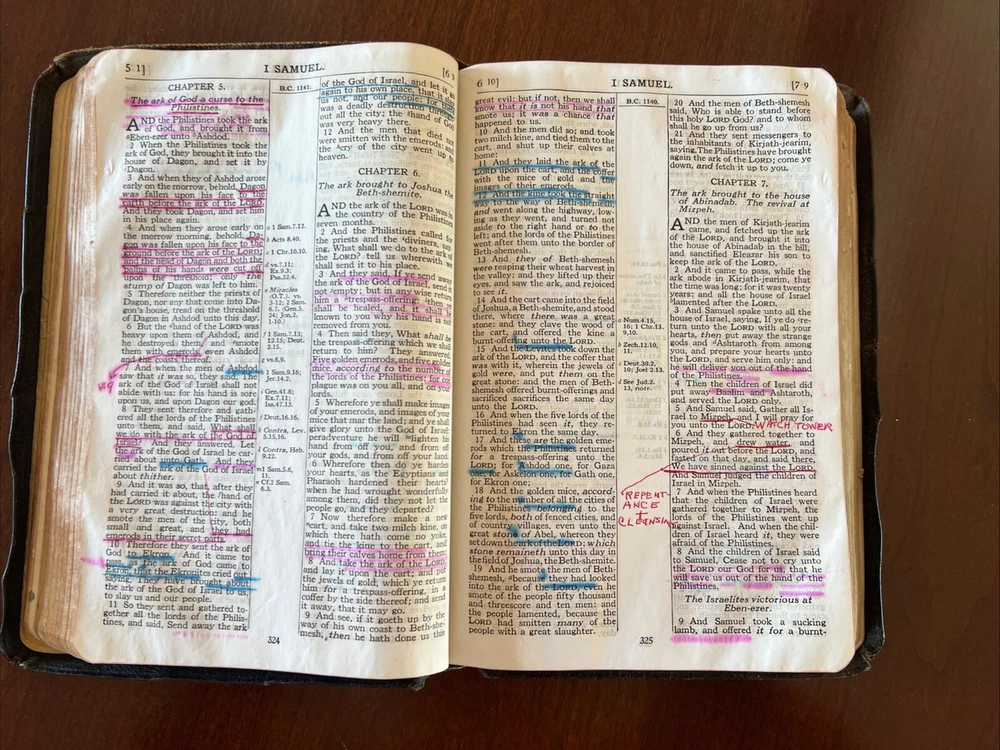 5 1]
I SAMUEL.
[6 9
CHAPTER 5.
The ark of God a curse to the
Philistines.
AND the Philistines took the
ark of God, and brought it from
Eben-ezer unto Ashdod.
2 When the Philistines took the
ark of God, they brought it into the
house of Dagon, and set it by
Dagon.
3 And when they of Ashdod arose
early on the morrow, behold, Dagon
was fallen upon his face to the
earth before the ark of the LORD.
And they took Dagon, and set him
in his place again.
4 And when they arose early on
the morrow morning, behold, Da-
gon was fallen upon his face to the
ground before the ark of the LORD;
and the head of Dagon and both the
palms of his hands were cut off
upon the threshold; only the
stump of Dagon was left to him.
5 Therefore neither the priests of
Dagon, nor any that come into Da-
gon's house, tread on the threshold
of Dagon in Ashdod unto this day.
6 But the hand of the LORD was
heavy upon them of Ashdod, and
he destroyed them, and smote
them with emerods, even Ashdod
and the coasts thereof.
7 And when the men of Ashdod
saw that it was so, they said, The
ark of the God of Israel shall not
abide with us: for his hand is sore
upon us, and upon Dagon our god.
8 They sent therefore and gath-
ered all the lords of the Philistines
unto them, and said, What shall
we do with the ark of the God of
Israel? And they answered, Let
the ark of the God of Israel be car-
ried about unto Gath. And they
carried the ark of the God of Israel
about thither.
9 And it was so, that, after they
had carried it about, the hand of
the LORD was against the city with
a very great destruction: and he
smote the men of the city, both
small and great, and they had
emerods in their secret parts.
10 Therefore they sent the ark of
God to Ekron. And it came to
pass, as the ark of God came to
Ekron, that the Ekronites cried out,
saying, They have brought about
the ark of the God of Israel to us,
to slay us and our people.
11 So they sent and gathered to-
gether all the lords of the Philis-
tines, and said, Send away the ark
B.C. 1141.
a 1 Sam.7.12.
b Acts 8.40.
c 1 Chr.10.10.
d vs.7,11;
Ex.9.3;
Psa.32.4.
e Miracles
(O.T.). vs.
3-12; 2 Sam.
6.7. (Gen.5.
24; Jon.2.
1-10.)
f 1 Sam.7.13;
12.15; Deut.
2.15.
g vs.6.9.
h 1 Sam.9.16;
Jer.14.2.
i Gen.41.8;
Ex.7.11;
Isa.47.13.
j Deut.16.16.
k Contra, Lev.
5.15,16.
l Contra, Heb.
9.22.
m 1 Sam.5.6,
n Cf.2 Sam.
6.3.
of the God of Israel, and let it go
again to his own place, that it slay
us not, and our people: for there
was a deadly destruction through-
out all the city; the hand of God
was very heavy there.
12 And the men that died not
were smitten with the emerods: and
the cry of the city went up to
heaven.
CHAPTER 6.
The ark brought to Joshua the
Beth-shemite.
AND the ark of the LORD was in
the country of the Philistines
seven months.
2 And the Philistines called for
the priests and the diviners, say-
ing, What shall we do to the ark of
the LORD? tell us wherewith we
shall send it to his place.
3 And they said, If ye send away
the ark of the God of Israel, send it
not empty; but in any wise return
him a trespass-offering: then ye
shall be healed, and it shall be
known to you why his hand is not
removed from you.
4 Then said they, What shall be
the trespass-offering which we shall
return to him? They answered,
Five golden emerods, and five golden
mice, according to the number of
the lords of the Philistines: for one
plague was on you all, and on your
lords.
5 Wherefore ye shall make images
of your emerods, and images of your
mice that mar the land; and ye shall
give glory unto the God of Israel:
peradventure he will lighten his
hand from off you, and from off
your gods, and from off your land.
6 Wherefore then do ye harden
your hearts, as the Egyptians and
Pharaoh hardened their hearts?
when he had wrought wonderfully
among them, did they not let the
people go, and they departed?
7 Now therefore make a new
cart, and take two milch kine, on
which there hath come no yoke,
and tie the kine to the cart, and
bring their calves home from them:
8 And take the ark of the LORD,
and lay it upon the cart; and put
the jewels of gold, which ye return
him for a trespass-offering, in a
coffer by the side thereof; and send
it away, that it may go.
9 And see, if it goeth up by the
way of his own coast to Beth-she-
mesh, then he hath done us this
324
6 10]
I SAMUEL.
[7 9
great evil: but if not, then we shall
know that it is not his hand that
smote us; it was a chance that
happened to us.
10 And the men did so; and took
two milch kine, and tied them to the
cart, and shut up their calves at
home:
11 And they laid the ark of the
LORD upon the cart, and the coffer
with the mice of gold and the
images of their emerods.
12 And the kine took the straight
way to the way of Beth-shemesh,
and went along the highway, low-
ing as they went, and turned not
aside to the right hand or to the
left; and the lords of the Philistines
went after them unto the border of
Beth-shemesh.
13 And they of Beth-shemesh
were reaping their wheat harvest in
the valley: and they lifted up their
eyes, and saw the ark, and rejoiced
to see it.
14 And the cart came into the field
of Joshua, a Beth-shemite, and stood
there, where there was a great
stone: and they clave the wood of
the cart, and offered the kine a
burnt-offering unto the LORD.
15 And the Levites took down
the ark of the LORD, and the coffer that
was with it, wherein the jewels of
gold were, and put them on the
great stone: and the men of Beth-
shemesh offered burnt-offerings and
sacrificed sacrifices the same day
unto the LORD.
16 And when the five lords of the
Philistines had seen it, they re-
turned to Ekron the same day.
17 And these are the golden eme-
rods which the Philistines returned
for a trespass-offering unto the
LORD; for Ashdod one, for Gaza
one, for Askelon one, for Gath one,
for Ekron one;
18 And the golden mice, accord-
ing to the number of all the cities
of the Philistines belonging to the
five lords, both of fenced cities, and
of country villages, even unto the
great stone of Abel, whereon they
set down the ark of the LORD: which
stone remaineth unto this day in the
field of Joshua, the Beth-shemite.
19 And he smote the men of Beth-
shemesh, because they had looked
into the ark of the LORD, even he
smote of the people fifty thousand
and threescore and ten men: and
the people lamented, because the
LORD had smitten many of the
people with a great slaughter.
B.C. 1140.
a Num.4.15,
16; 1 Chr.13.
9,10.
b Zech.12.10,
11.
Deut.30.2,
10; Joel 2.13.
d See Jud.2.
13, note.
REPENT-
ANCE
+
CLEANSING
20 And the men of Beth-shemesh
said, Who is able to stand before
this holy LORD God? and to whom
shall he go up from us?
21 And they sent messengers to
the inhabitants of Kirjath-jearim,
saying, The Philistines have brought
again the ark of the LORD; come ye
down, and fetch it up to you.
CHAPTER 7.
The ark brought to the house
of Abinadab. The revival at
Mizpeh.
AND the men of Kirjath-jearim
came, and fetched up the ark
of the LORD, and brought it into
the house of Abinadab in the hill,
and sanctified Eleazar his son to
keep the ark of the LORD.
2 And it came to pass, while the
ark abode in Kirjath-jearim, that
the time was long; for it was twenty
years: and all the house of Israel
lamented after the LORD.
3 And Samuel spake unto all the
house of Israel, saying, If ye do re-
turn unto the LORD with all your
hearts, then put away the strange
gods and Ashtaroth from among
you, and prepare your hearts unto
the LORD, and serve him only: and
he will deliver you out of the hand
of the Philistines.
4 Then the children of Israel did
put away Baalim and Ashtaroth,
and served the LORD only.
5 And Samuel said, Gather all Is-
rael to Mizpeh, and I will pray for
you unto the LORD. WATCH TOWER
6 And they gathered together to
Mizpeh, and drew water, and
poured it out before the LORD, and
fasted on that day, and said there,
We have sinned against the LORD.
And Samuel judged the children of
Israel in Mizpeh.
7 And when the Philistines heard
that the children of Israel were
gathered together to Mizpeh, the
lords of the Philistines went up
against Israel. And when the chil-
dren of Israel heard it, they were
afraid of the Philistines.
8 And the children of Israel said
to Samuel, Cease not to cry unto
the LORD our God for us, that he
will save us out of the hand of the
Philistines.
The Israelites victorious at
Eben-ezer.
9 And Samuel took a sucking
lamb, and offered it for a burnt-
325